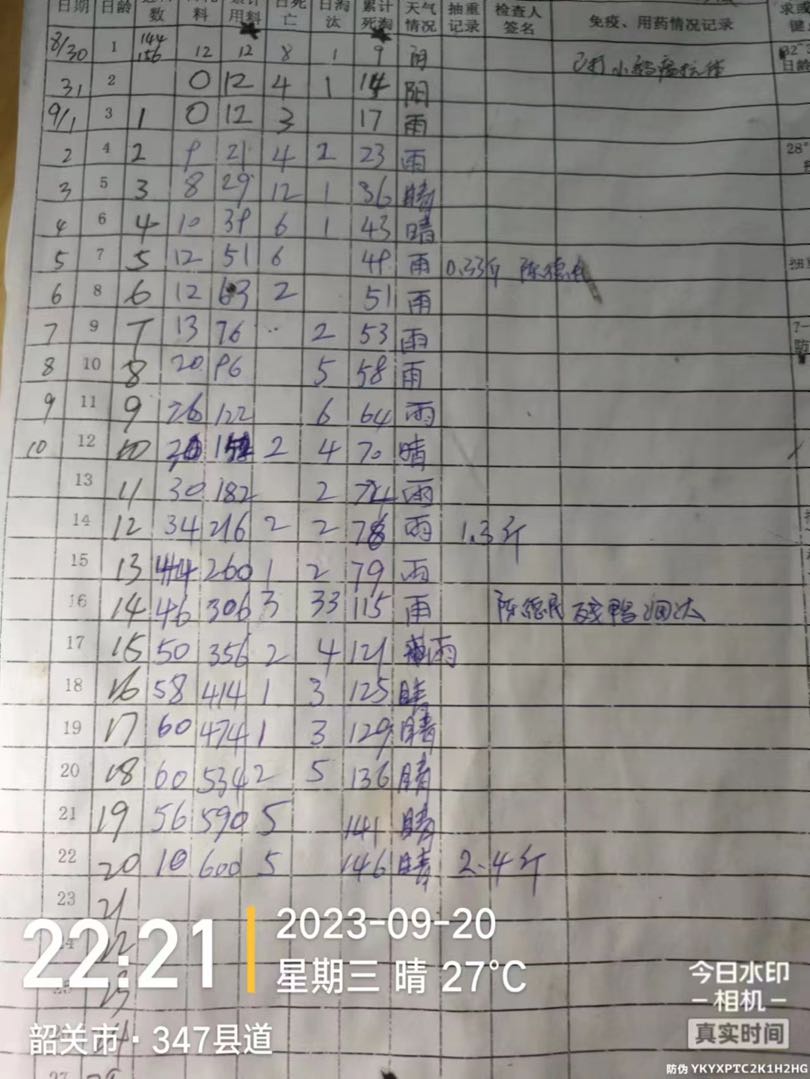 日期 日龄 数 料 累计用料 日死亡 日淘汰 累计死淘 天气情况 抽重记录 检查人签名 免疫、用药情况记录
8/30 1 144 156 12 12 8 1 9 阴
31 2 0 12 4 1 14 阳
9/1 3 1 0 12 3 17 雨
2 4 2 9 21 4 2 23 雨
3 5 3 8 29 12 1 36 晴
4 6 4 10 39 6 1 43 晴
5 7 5 12 51 6 49 雨 0.33斤 陈德民
6 8 6 12 63 2 51 雨
7 9 7 13 76 2 53 雨
8 10 8 20 96 5 58 雨
9 11 9 26 122 6 64 雨
10 12 10 30 152 2 4 70 晴
13 11 30 182 2 72 雨
14 12 34 216 2 2 76 雨 1.3斤
15 13 44 260 1 2 79 雨
16 14 46 306 3 33 115 雨 陈德民 残鸭
17 15 50 356 2 4 121 雨
18 16 58 414 1 3 125 晴
19 17 60 474 1 3 129 晴
20 18 60 534 2 5 136 晴
21 19 56 590 5 141 晴
22 20 10 600 5 146 晴 2.4斤
23 21
22
23
28°
22:21
2023-09-20
星期三 晴 27°C
韶关市·347县道
今日水印
相机
真实时间
防伪 YKYXPTC2K1H2HG